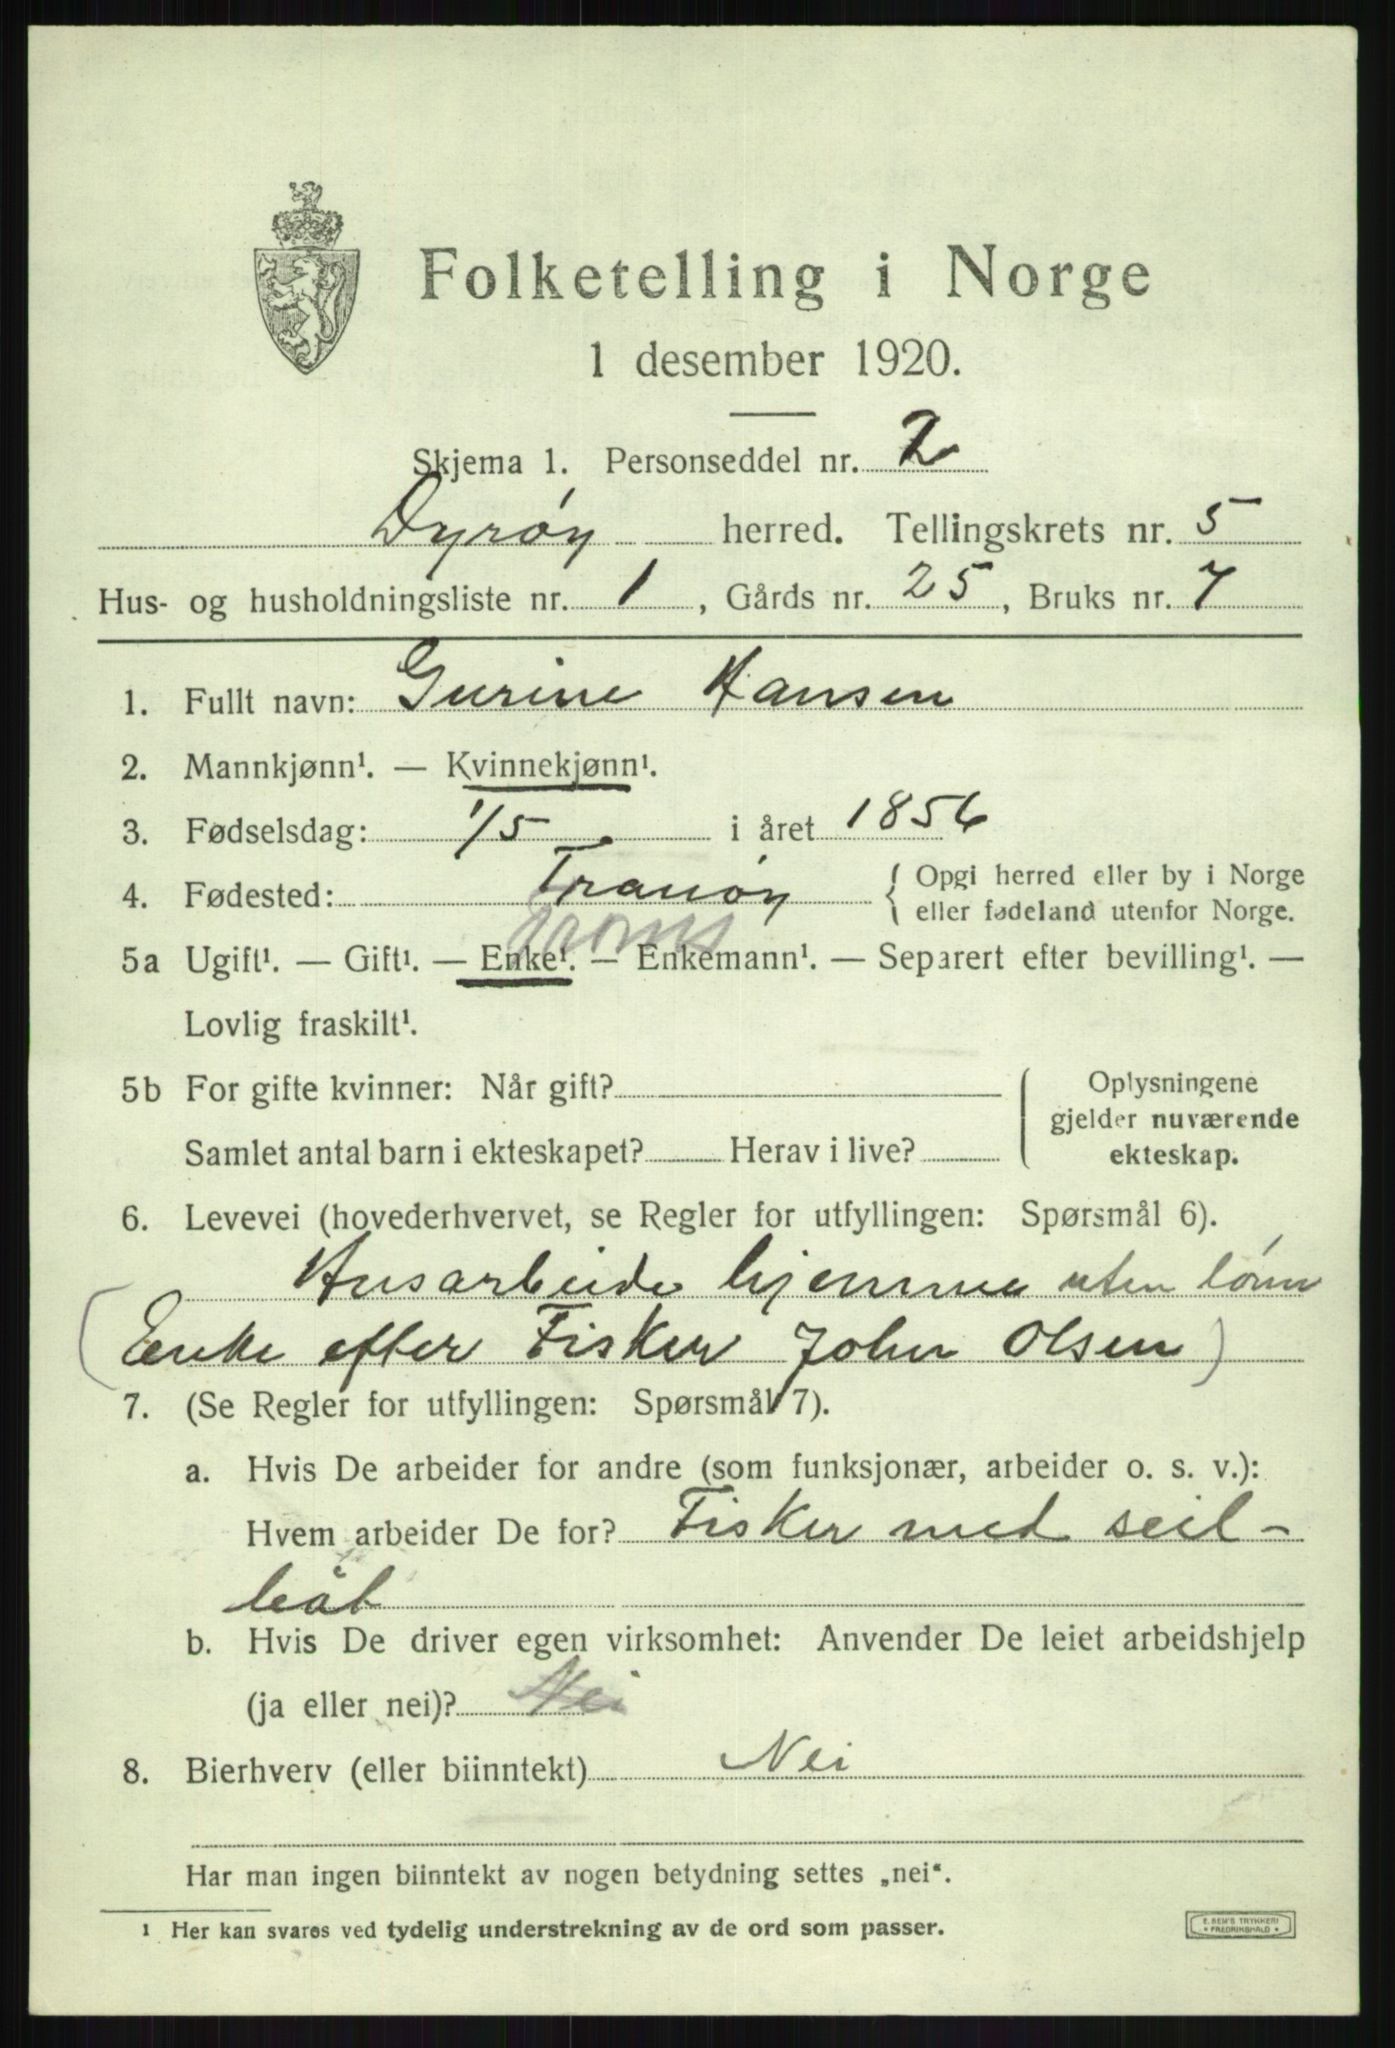 Folketelling i Norge
1 desember 1920.
Skjema 1. Personseddel nr. 2
Dyrøy herred. Tellingskrets nr. 5
Hus- og husholdningsliste nr. 1, Gårds nr. 25, Bruks nr. 7
1. Fullt navn: Gurine Hansen
2. Mannkjønn¹. — Kvinnekjønn¹.
3. Fødselsdag: 1/5 i året 1856
4. Fødested: Tranøy { Opgi herred eller by i Norge
eller fødeland utenfor Norge.
Troms
5a Ugift¹. — Gift¹. — Enke¹. — Enkemann¹. — Separert efter bevilling¹. —
Lovlig fraskilt¹.
5b For gifte kvinner: Når gift?
Samlet antal barn i ekteskapet? Herav i live?
Oplysningene
gjelder nuværende
ekteskap.
6. Levevei (hovederhvervet, se Regler for utfyllingen: Spørsmål 6).
Husarbeide hjemme uten lønn
(Enke efter Fisker John Olsen)
7. (Se Regler for utfyllingen: Spørsmål 7).
a. Hvis De arbeider for andre (som funksjonær, arbeider o. s. v.):
Hvem arbeider De for? Fisker med seil-
båt
b. Hvis De driver egen virksomhet: Anvender De leiet arbeidshjelp
(ja eller nei)? Nei
8. Bierhverv (eller biinntekt) Nei
Har man ingen biinntekt av nogen betydning settes „nei“.
¹ Her kan svares ved tydelig understrekning av de ord som passer.
E. SEM'S TRYKKERI
* FREDRIKSHALD *